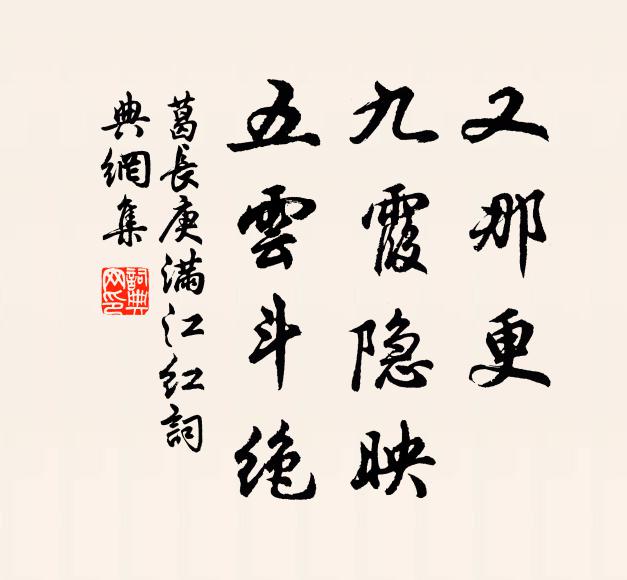 又那更
九霞隐映
五雲斗绝
葛長庚满江红詞
典網集
詞典網印